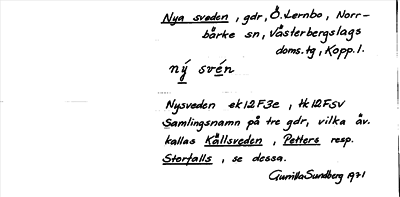 Nya sveden, gdr, Ö. Lernbo, Norr-
bärke sn, Västerbergslags
doms. tg, Kopp. l.
ný svén
Nysveden ek12F3e, tk12FSV
Samlingsnamn på tre gdr, vilka äv.
kallas Källsveden, Petters resp.
Storfalls, se dessa.
Gunilla Sundberg 1971